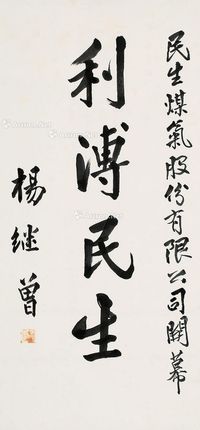 民生煤氣股份有限公司開幕
利溥民生
楊继曾